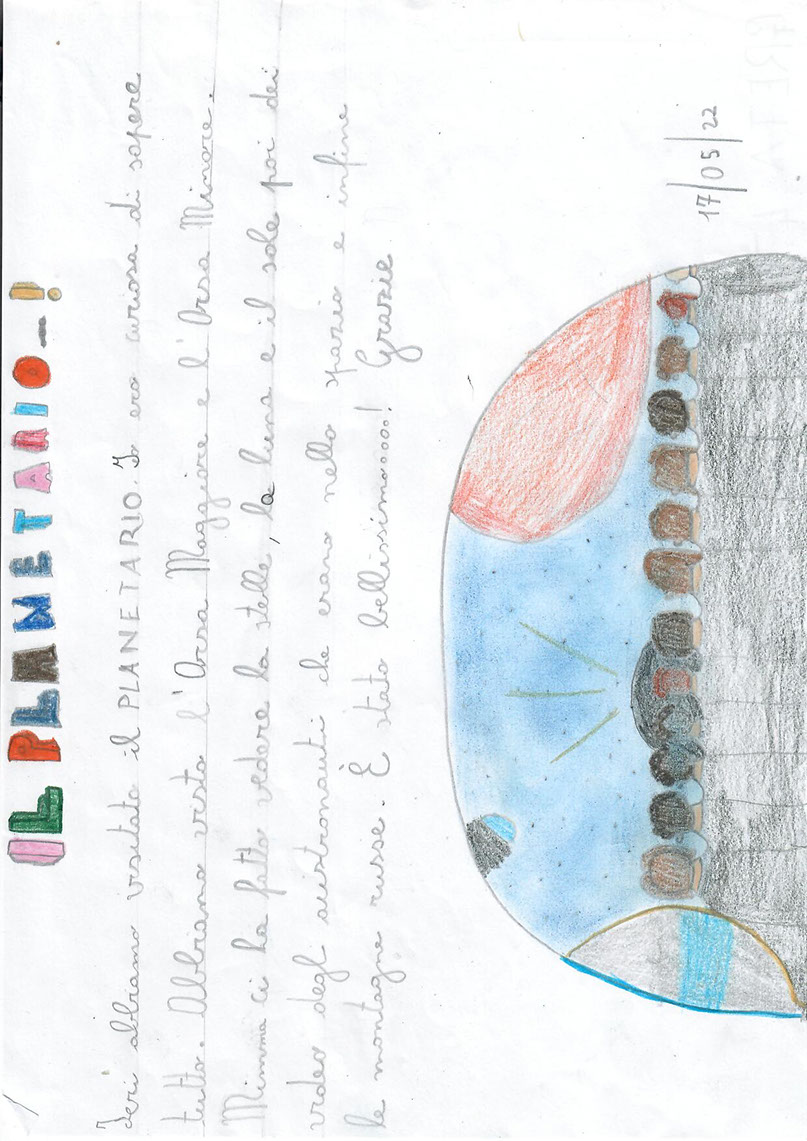 IL PLANETARIO...!
Ieri abbiamo visitato il PLANETARIO. Io ero curiosa di sapere
tutto. Abbiamo visto l'Orsa Maggiore e l'Orsa Minore.
Mimma ci ha fatto vedere la stelle, la luna e il sole poi dei
video degli austronauti che erano nello spazio e infine
le montagne russe. È stato bellissimooooo! Grazie
17/05/22